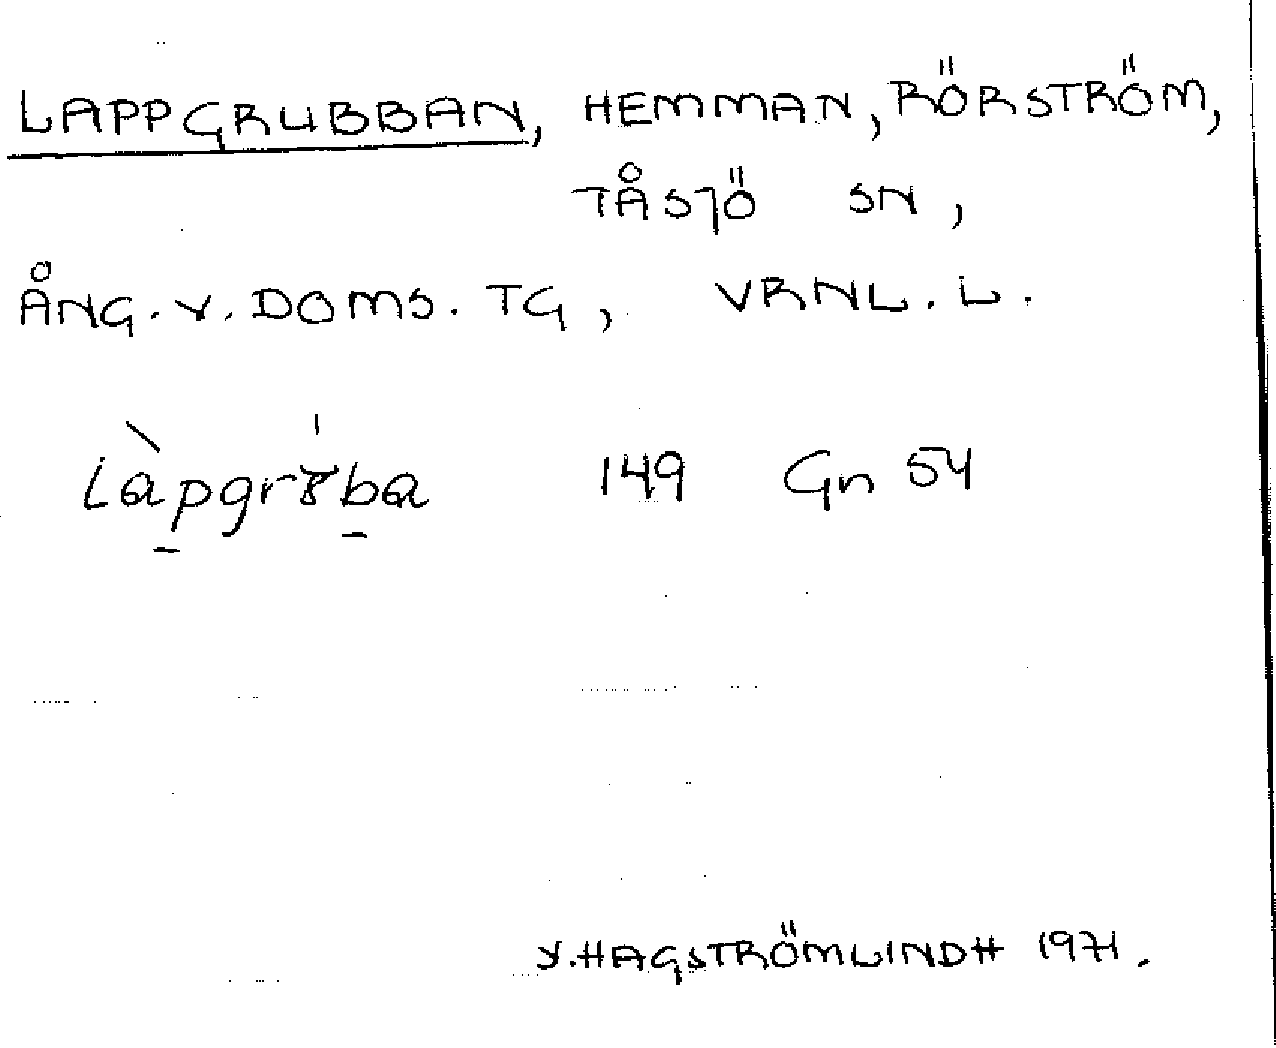 LAPPGRUBBAN, HEMMAN, RÖRSTRÖM,
TÅSJÖ SN,
ÅNG. V. DOMS. TG, VRNL. L.
149 Gn 54
Y. HAGSTRÖMLINDH 1971.